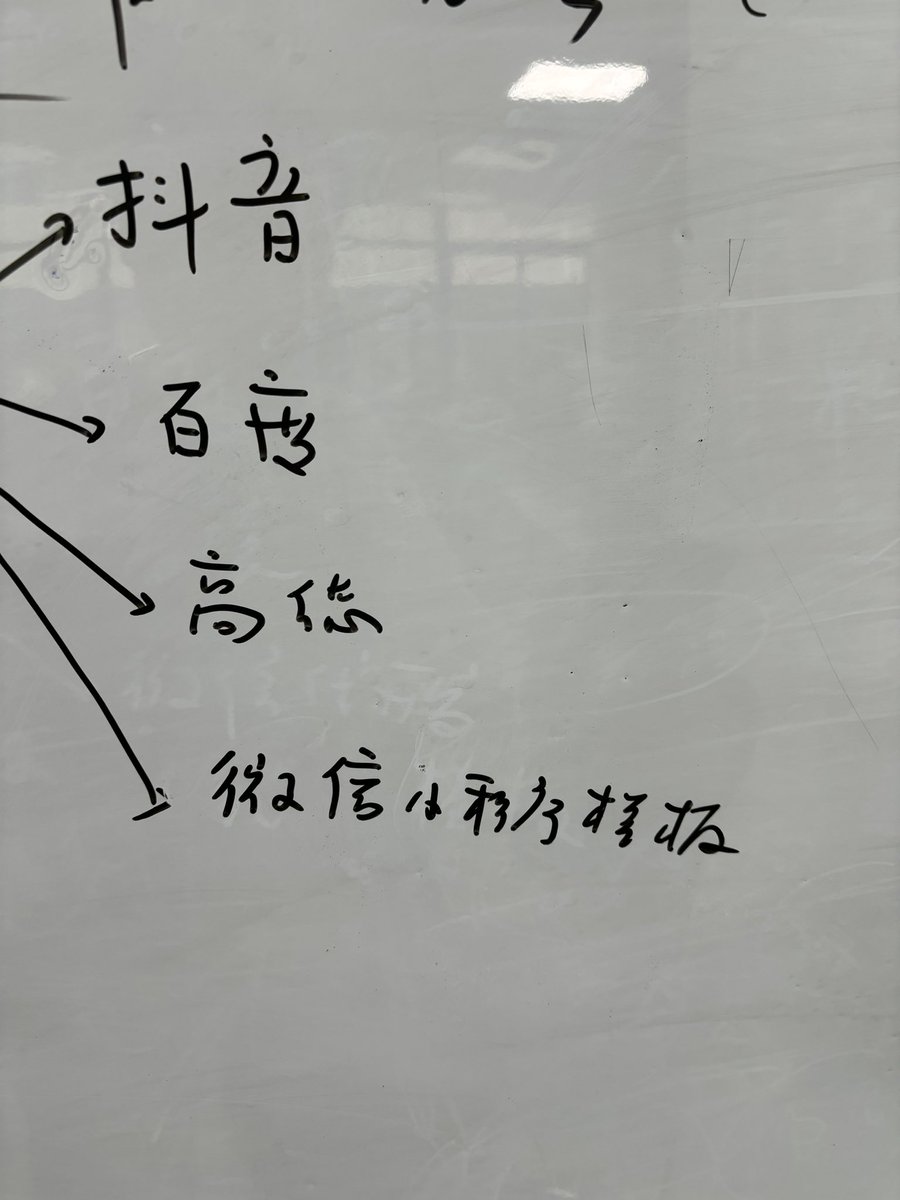 抖音
百度
高德
微信小程序模板